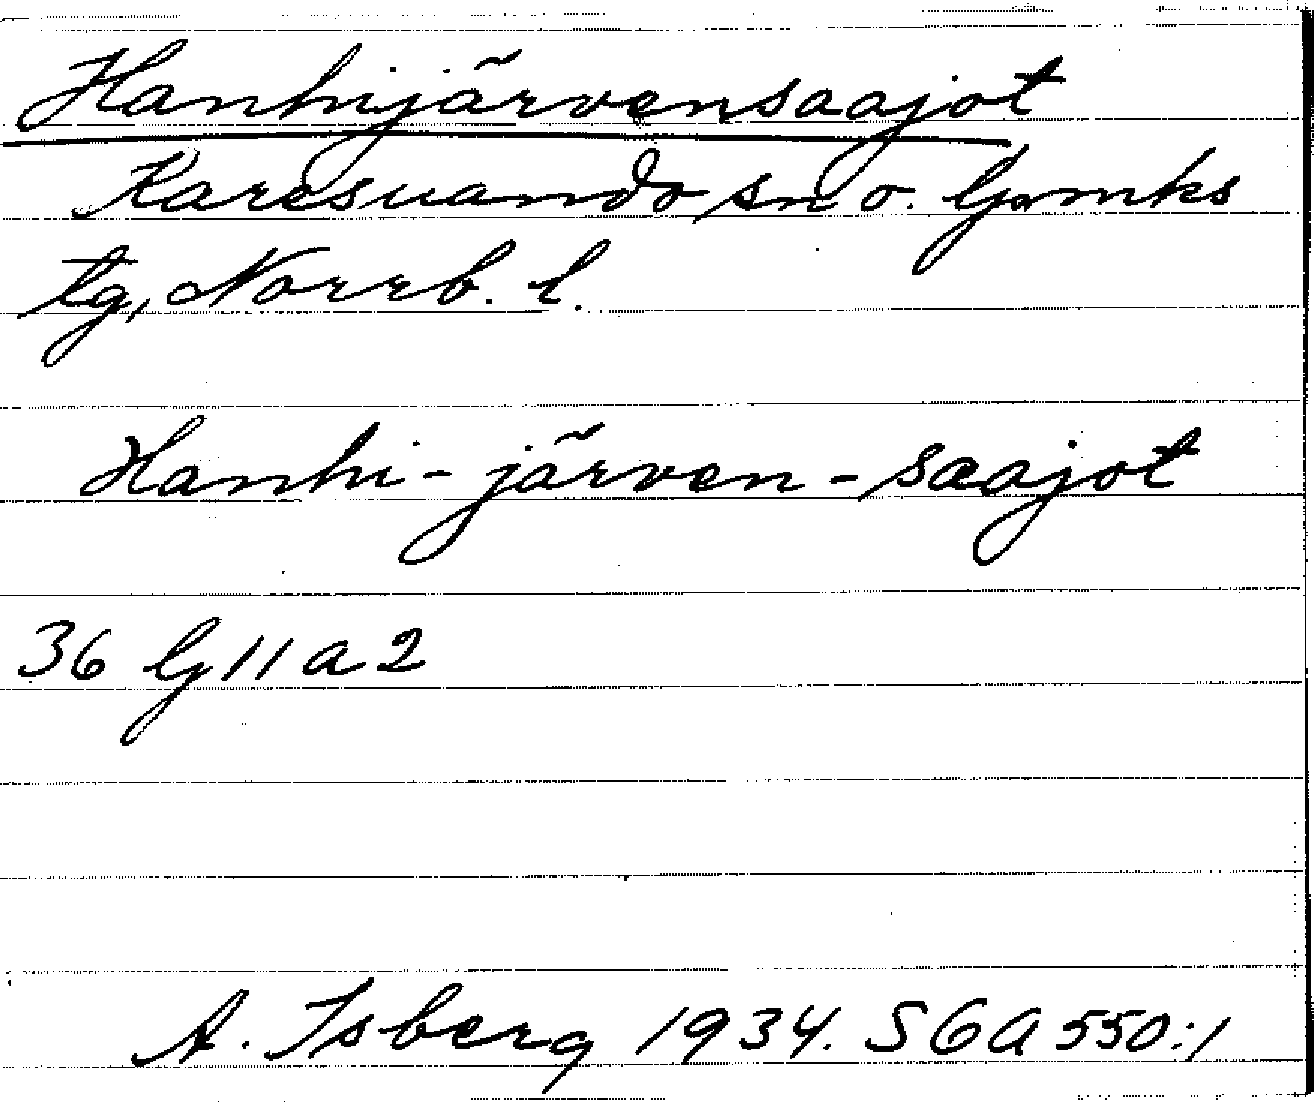 Hanhijärvensaajot
Karesuando sn o. Gnmks
tg, Norrb. l.
Hanhi-järven-saajot
36 G 11 a 2
A. Isberg 1934. SGA 550:1